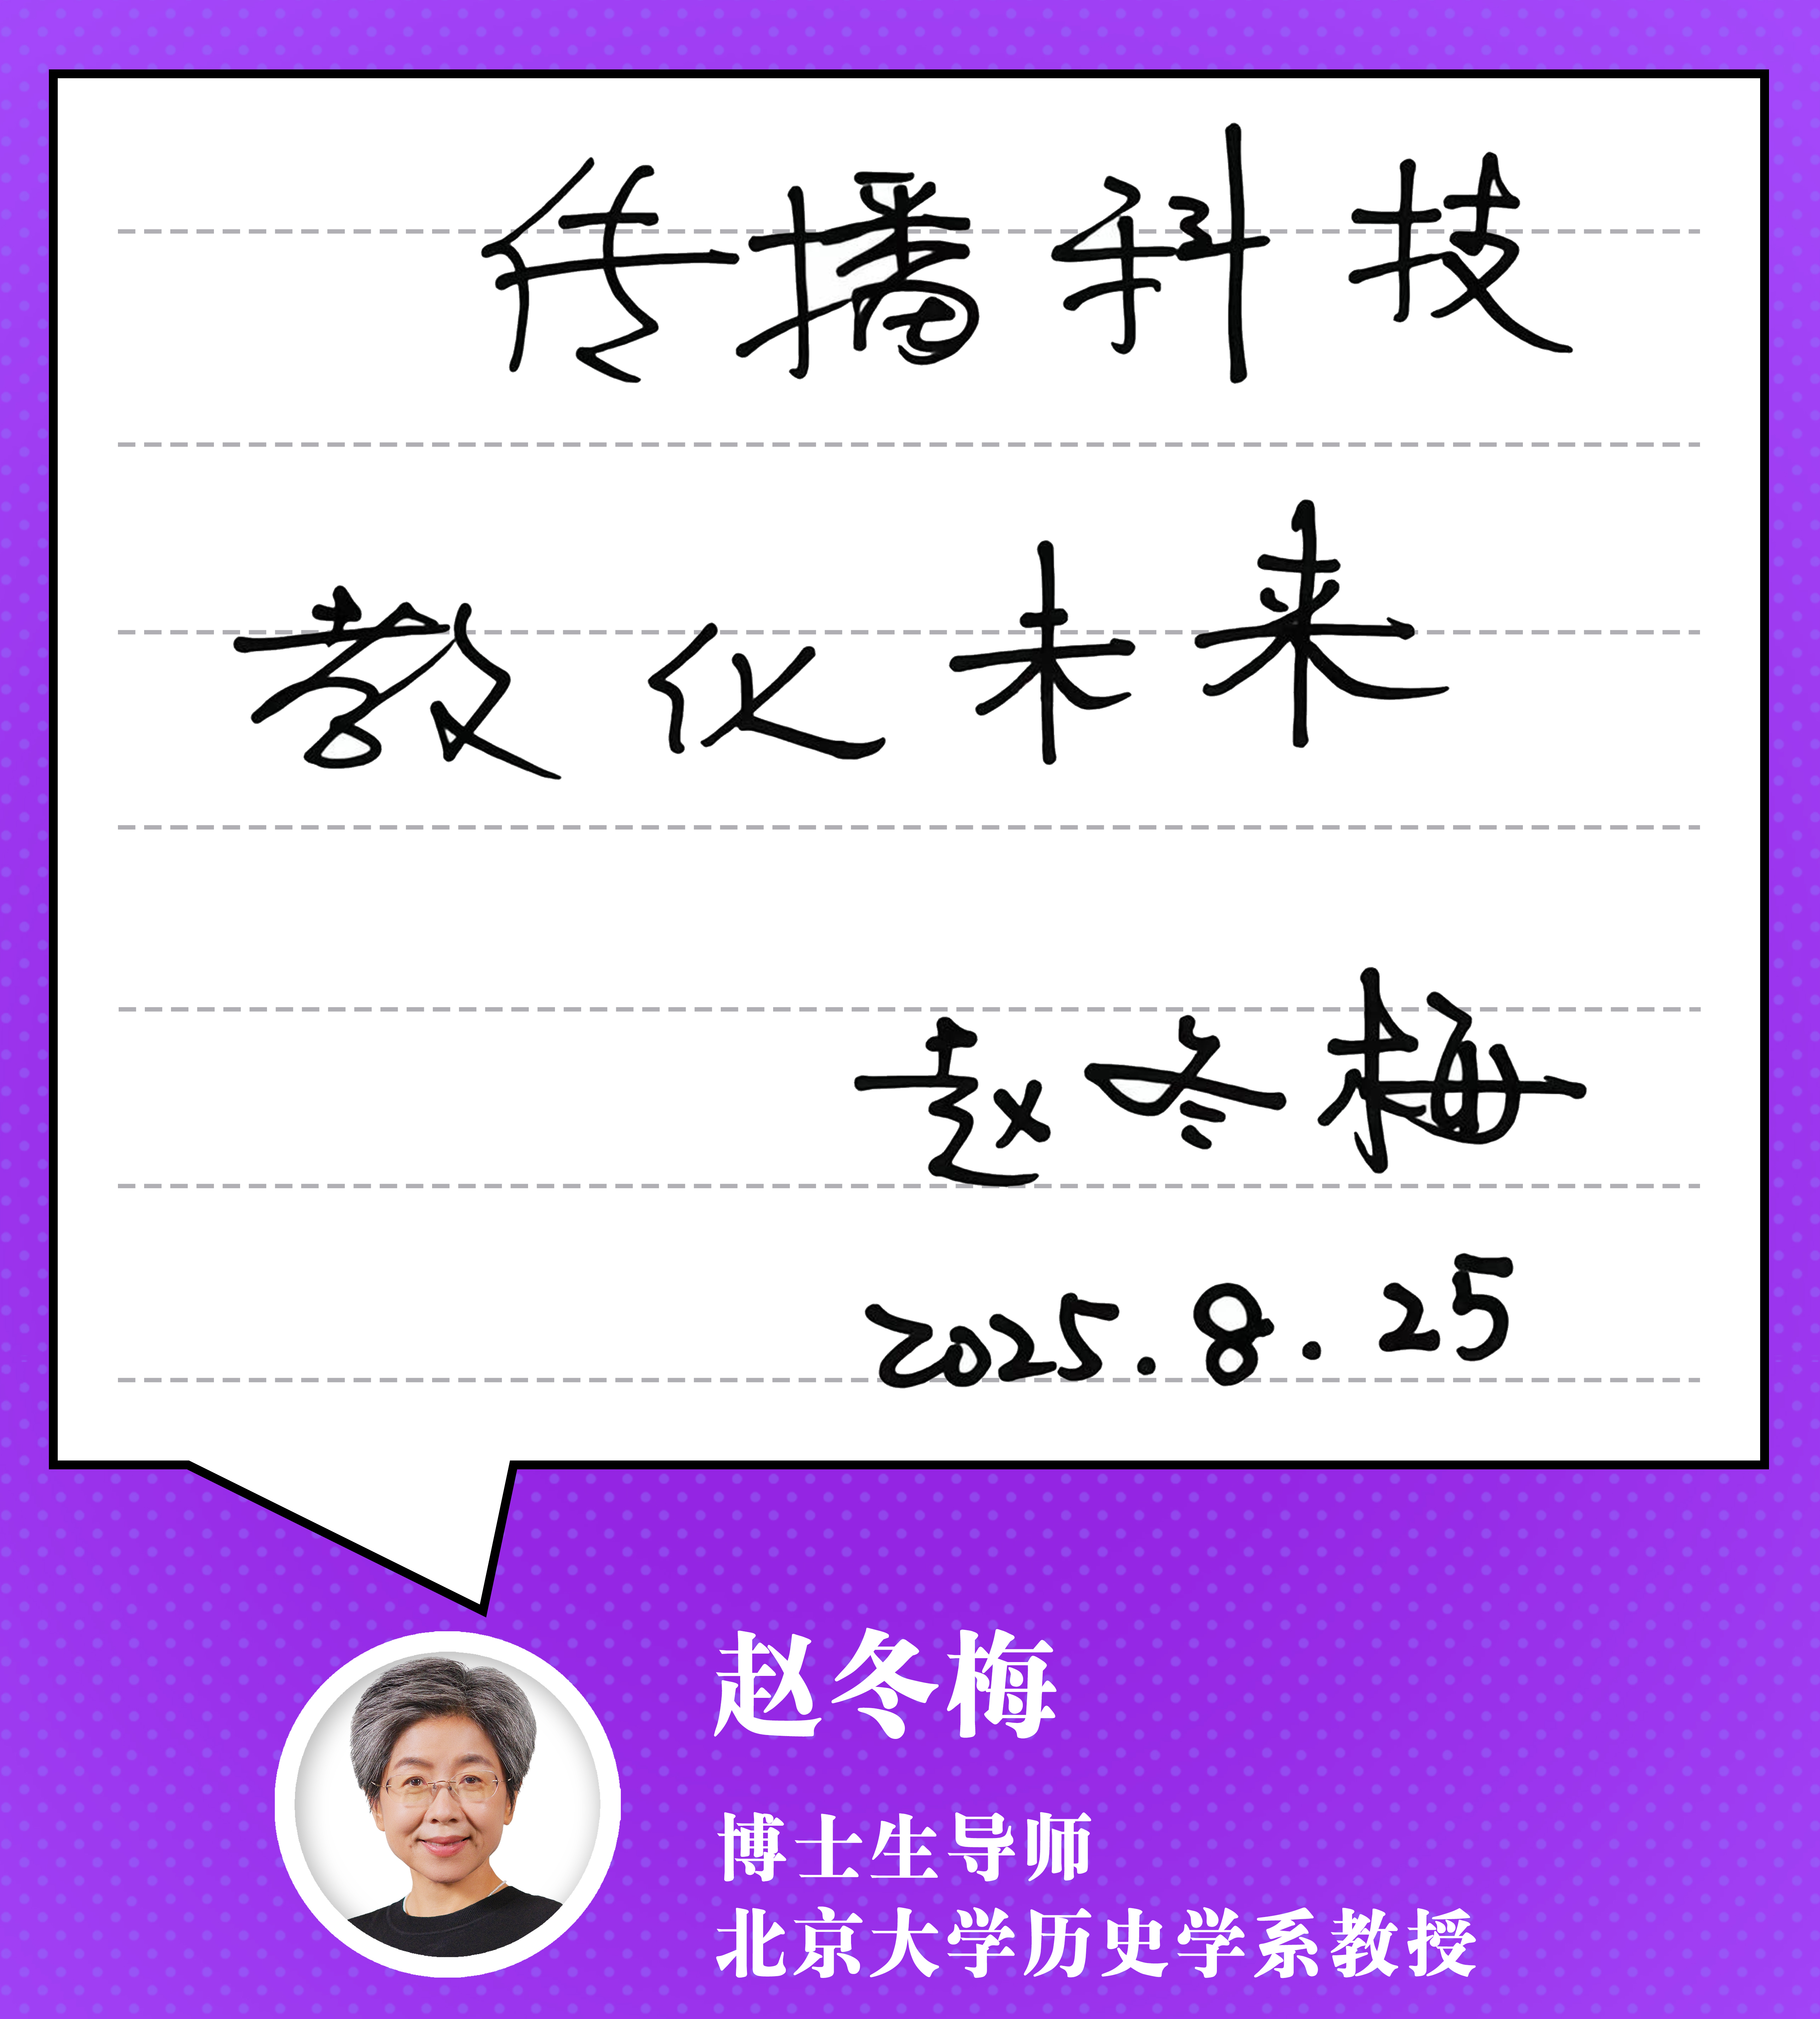 传播科技
教化未来
赵冬梅
2025.8.25
赵冬梅
博士生导师
北京大学历史学系教授